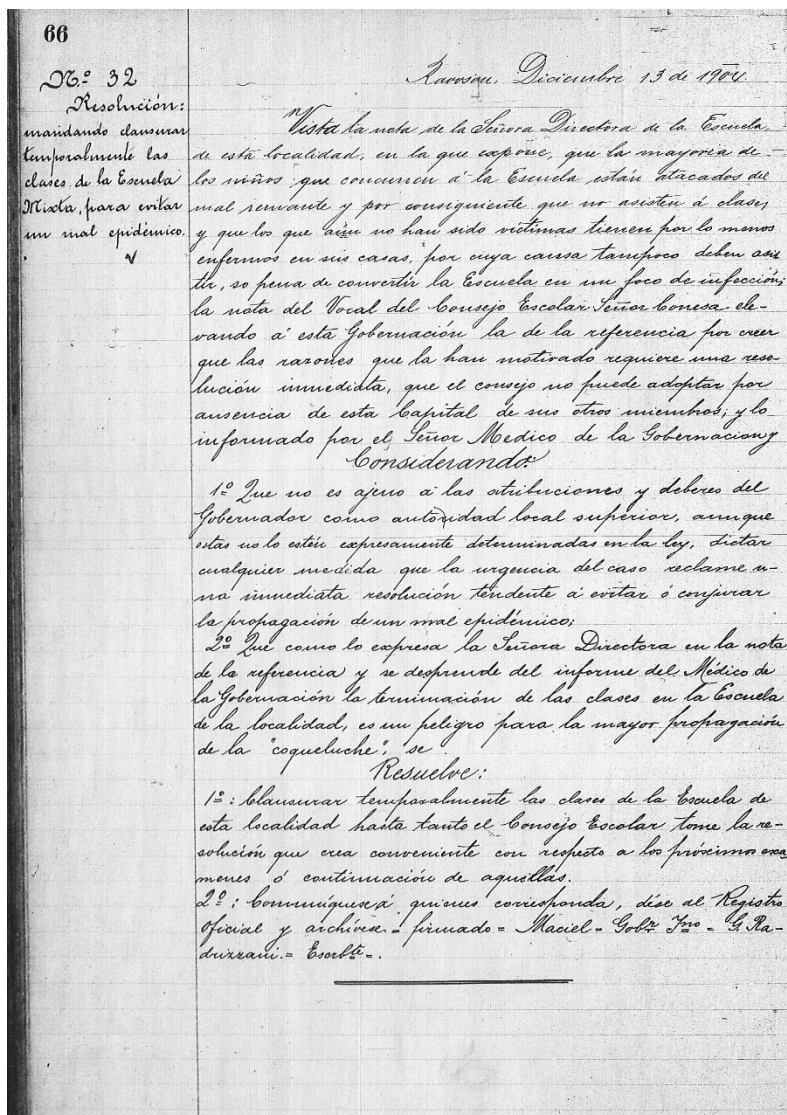 66
Nº 32
Resolución:
mandando clausurar
temporalmente las
clases de la Escuela
Mixta, para evitar
un mal epidémico.
Rawson, Diciembre 13 de 1904.
Vista la nota de la Señora Directora de la Escuela
de esta localidad, en la que expone, que la mayoria de
los niños que concurren á la Escuela están atacados del
mal reinante y por consiguiente que no asisten á clase;
y que los que aún no han sido victimas tienen por lo menos
enfermos en sus casas, por cuya causa tampoco deben asis
tir, so pena de convertir la Escuela en un foco de infección;
la nota del Vocal del Consejo Escolar Señor Conesa ele-
vando á esta Gobernación la de la referencia por creer
que las razones que la han motivado requiere una reso-
lución inmediata, que el consejo no puede adoptar por
ausencia de esta Capital de sus otros miembros; y lo
informado por el Señor Medico de la Gobernacion y
Considerando:
1º Que no es ajeno á las atribuciones y deberes del
Gobernador como autoridad local superior, aunque
estas no lo estén expresamente determinadas en la ley, dictar
cualquier medida que la urgencia del caso reclame u-
na inmediata resolución tendente á evitar ó conjurar
la propagación de un mal epidémico;
2º Que como lo expresa la Señora Directora en la nota
de la referencia y se desprende del informe del Médico de
la Gobernación la terminación de las clases en la Escuela
de la localidad, es un peligro para la mayor propagación
de la "coqueluche", se
Resuelve:
1º: Clausurar temporalmente las clases de la Escuela de
esta localidad hasta tanto el Consejo Escolar tome la re-
solución que crea conveniente con respecto a los próximos exa
menes ó continuación de aquellas.
2º: Comuníquese á quienes corresponda, dése al Registro
Oficial y archívese = firmado = Maciel = Gobr Ino = G. Ra-
drizzani = Escrbte =.